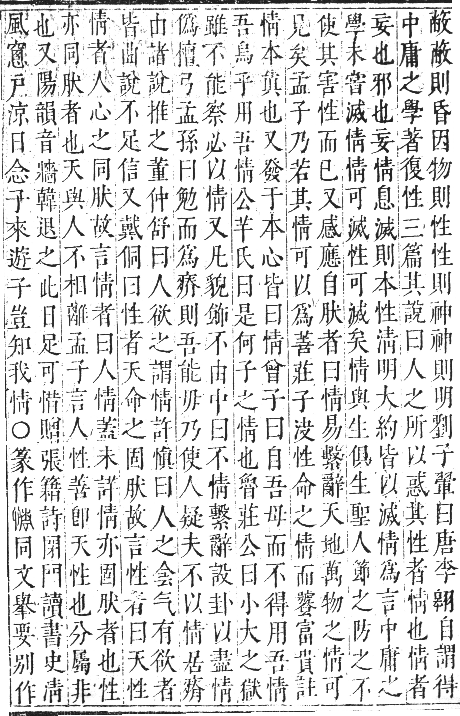 蔽蔽則昏因物則性性則神神則明劉子翬曰唐李翱自謂得
中庸之學著復性三篇其說曰人之所以惑其性者情也情者
妄也邪也妄情息滅則本性淸明大約皆以滅情爲言中庸之
學未嘗滅情情可滅性可滅矣情與生俱生聖人節之防之不
使其害性而已又感應自肰者曰情易繫辭天地萬物之情可
見矣孟子乃若其情可以爲善莊子浚性命之情而饕富貴註
情本眞也又發于本心皆曰情曾子曰自吾母而不得用吾情
吾烏乎用吾情公羊氏曰是何子之情也魯莊公曰小大之獄
雖不能察必以情又凡貌飾不由中曰不情繫辭設卦以盡情
僞檀弓孟孫曰勉而爲瘠則吾能毋乃使人疑夫不以情居瘠
由諸說推之董仲舒曰人欲之謂情許愼曰人之侌气有欲者
皆曲說不足信又戴侗曰性者天命之固肰故言性者曰天性
情者人心之同肰故言情者曰人情蓋未諾情亦固肰者也性
亦同肰者也天與人不相離孟子言人性善卽天性也分屬非
也又陽韻音牆韓退之此日足可惜贈張籍詩閉門讀書史淸
風窻戶涼日念子來遊子豈知我情○篆作𢡱同文舉要别作